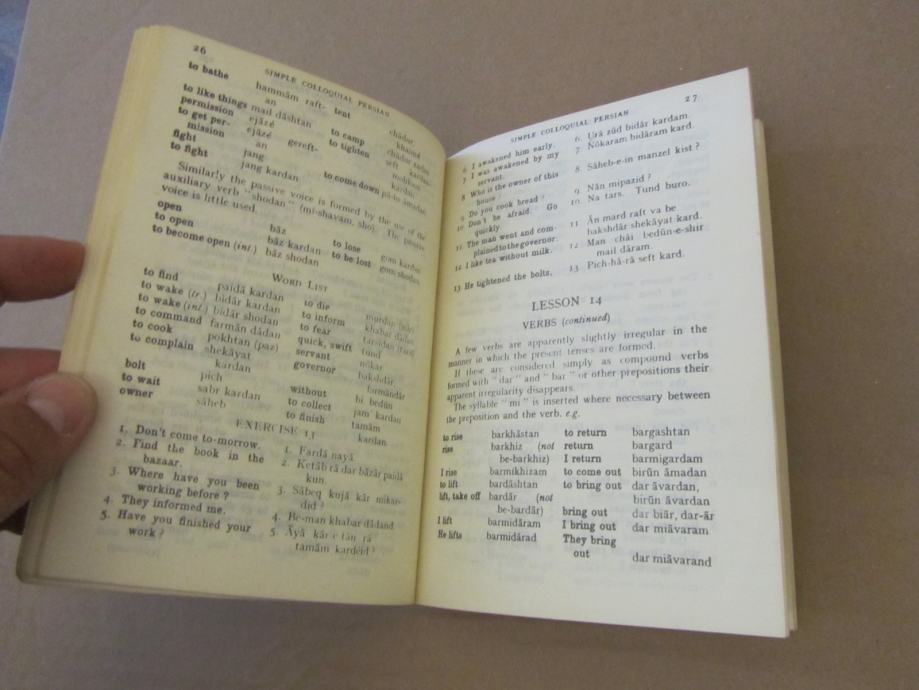 26
SIMPLE COLLOQUIAL PERSIAN
to bathe hammām raft- tent chādor
an to camp
to like things mail dāshtan
permission ejāzé chādor zadan
to get per- ejāzé gereft- to tighten seft
mission an kardan
fight jang
to fight jang kardan to come down pā-in āmadan
Similarly the passive voice is formed by the use of the
auxiliary verb "shodan" (mi-shavam, sho). The passive
voice is little used.
open bāz to lose gom kardan
to open bāz kardan to be lost gom shodan
to become open (int.) bāz shodan
WORD LIST
to find paidā kardan to die
to wake (tr.) bidār kardan to inform khabar dādan
to wake (int.) bidār shodan to fear
to command farmān dādan quick, swift tund
to cook pokhtan (paz) servant nōkar
to complain shekāyat governor bakshdār,
kardan farmāndār
bolt pich without bi bedūn
to wait sabr kardan to collect jam' kardan
owner sāheb to finish tamām
kardan.
EXERCISE 13
1. Don't come to-morrow. 1. Fardā nayā
2. Find the book in the 2. Ketāb rā dar bāzār paidā
bazaar. kun.
3. Where have you been 3. Sābeq kujā kār mikar-
working before ? did ?
4. They informed me. 4. Be-man khabar dādand
5. Have you finished your 5. Āyā kār-e-tān rā
work ? tamām kardeid ?
SIMPLE COLLOQUIAL PERSIAN 27
6 I awakened him early. 6. Urā zūd bidār kardam.
7 I was awakened by my 7. Nōkaram bidāram kard.
servant.
8 Who is the owner of this 8. Sāheb-e-in manzel kist ?
house ?
9 Do you cook bread ? 9. Nān mipazid ?
10. Don't be afraid. Go 10. Na tars. Tund buro.
quickly.
11 The man went and com- 11 Ān mard raft va be
plained to the governor. bakshdār shekāyat kard.
12. I like tea without milk. 12 Man chāi bedūn-e-shir
mail dāram.
13 He tightened the bolts. 13 Pich-hā-rā seft kard.
LESSON 14
VERBS (continued)
A few verbs are apparently slightly irregular in the
manner in which the present tenses are formed.
If these are considered simply as compound verbs
formed with "dar" and "bar" or other prepositions their
apparent irregularity disappears.
The syllable "mi" is inserted where necessary between
the preposition and the verb. e.g.
to rise barkhāstan to return bargashtan
rise barkhiz (not return bargard
be-barkhiz) I return barmigardam
I rise barmikhizam to come out birūn āmadan
to lift bardāshtan to bring out dar āvardan,
lift, take off bardār (not birūn āvardan
be-bardār) bring out dar biār, dar-ār
I lift barmidāram I bring out dar miāvaram
He lifts barmidārad They bring
out dar miāvarand